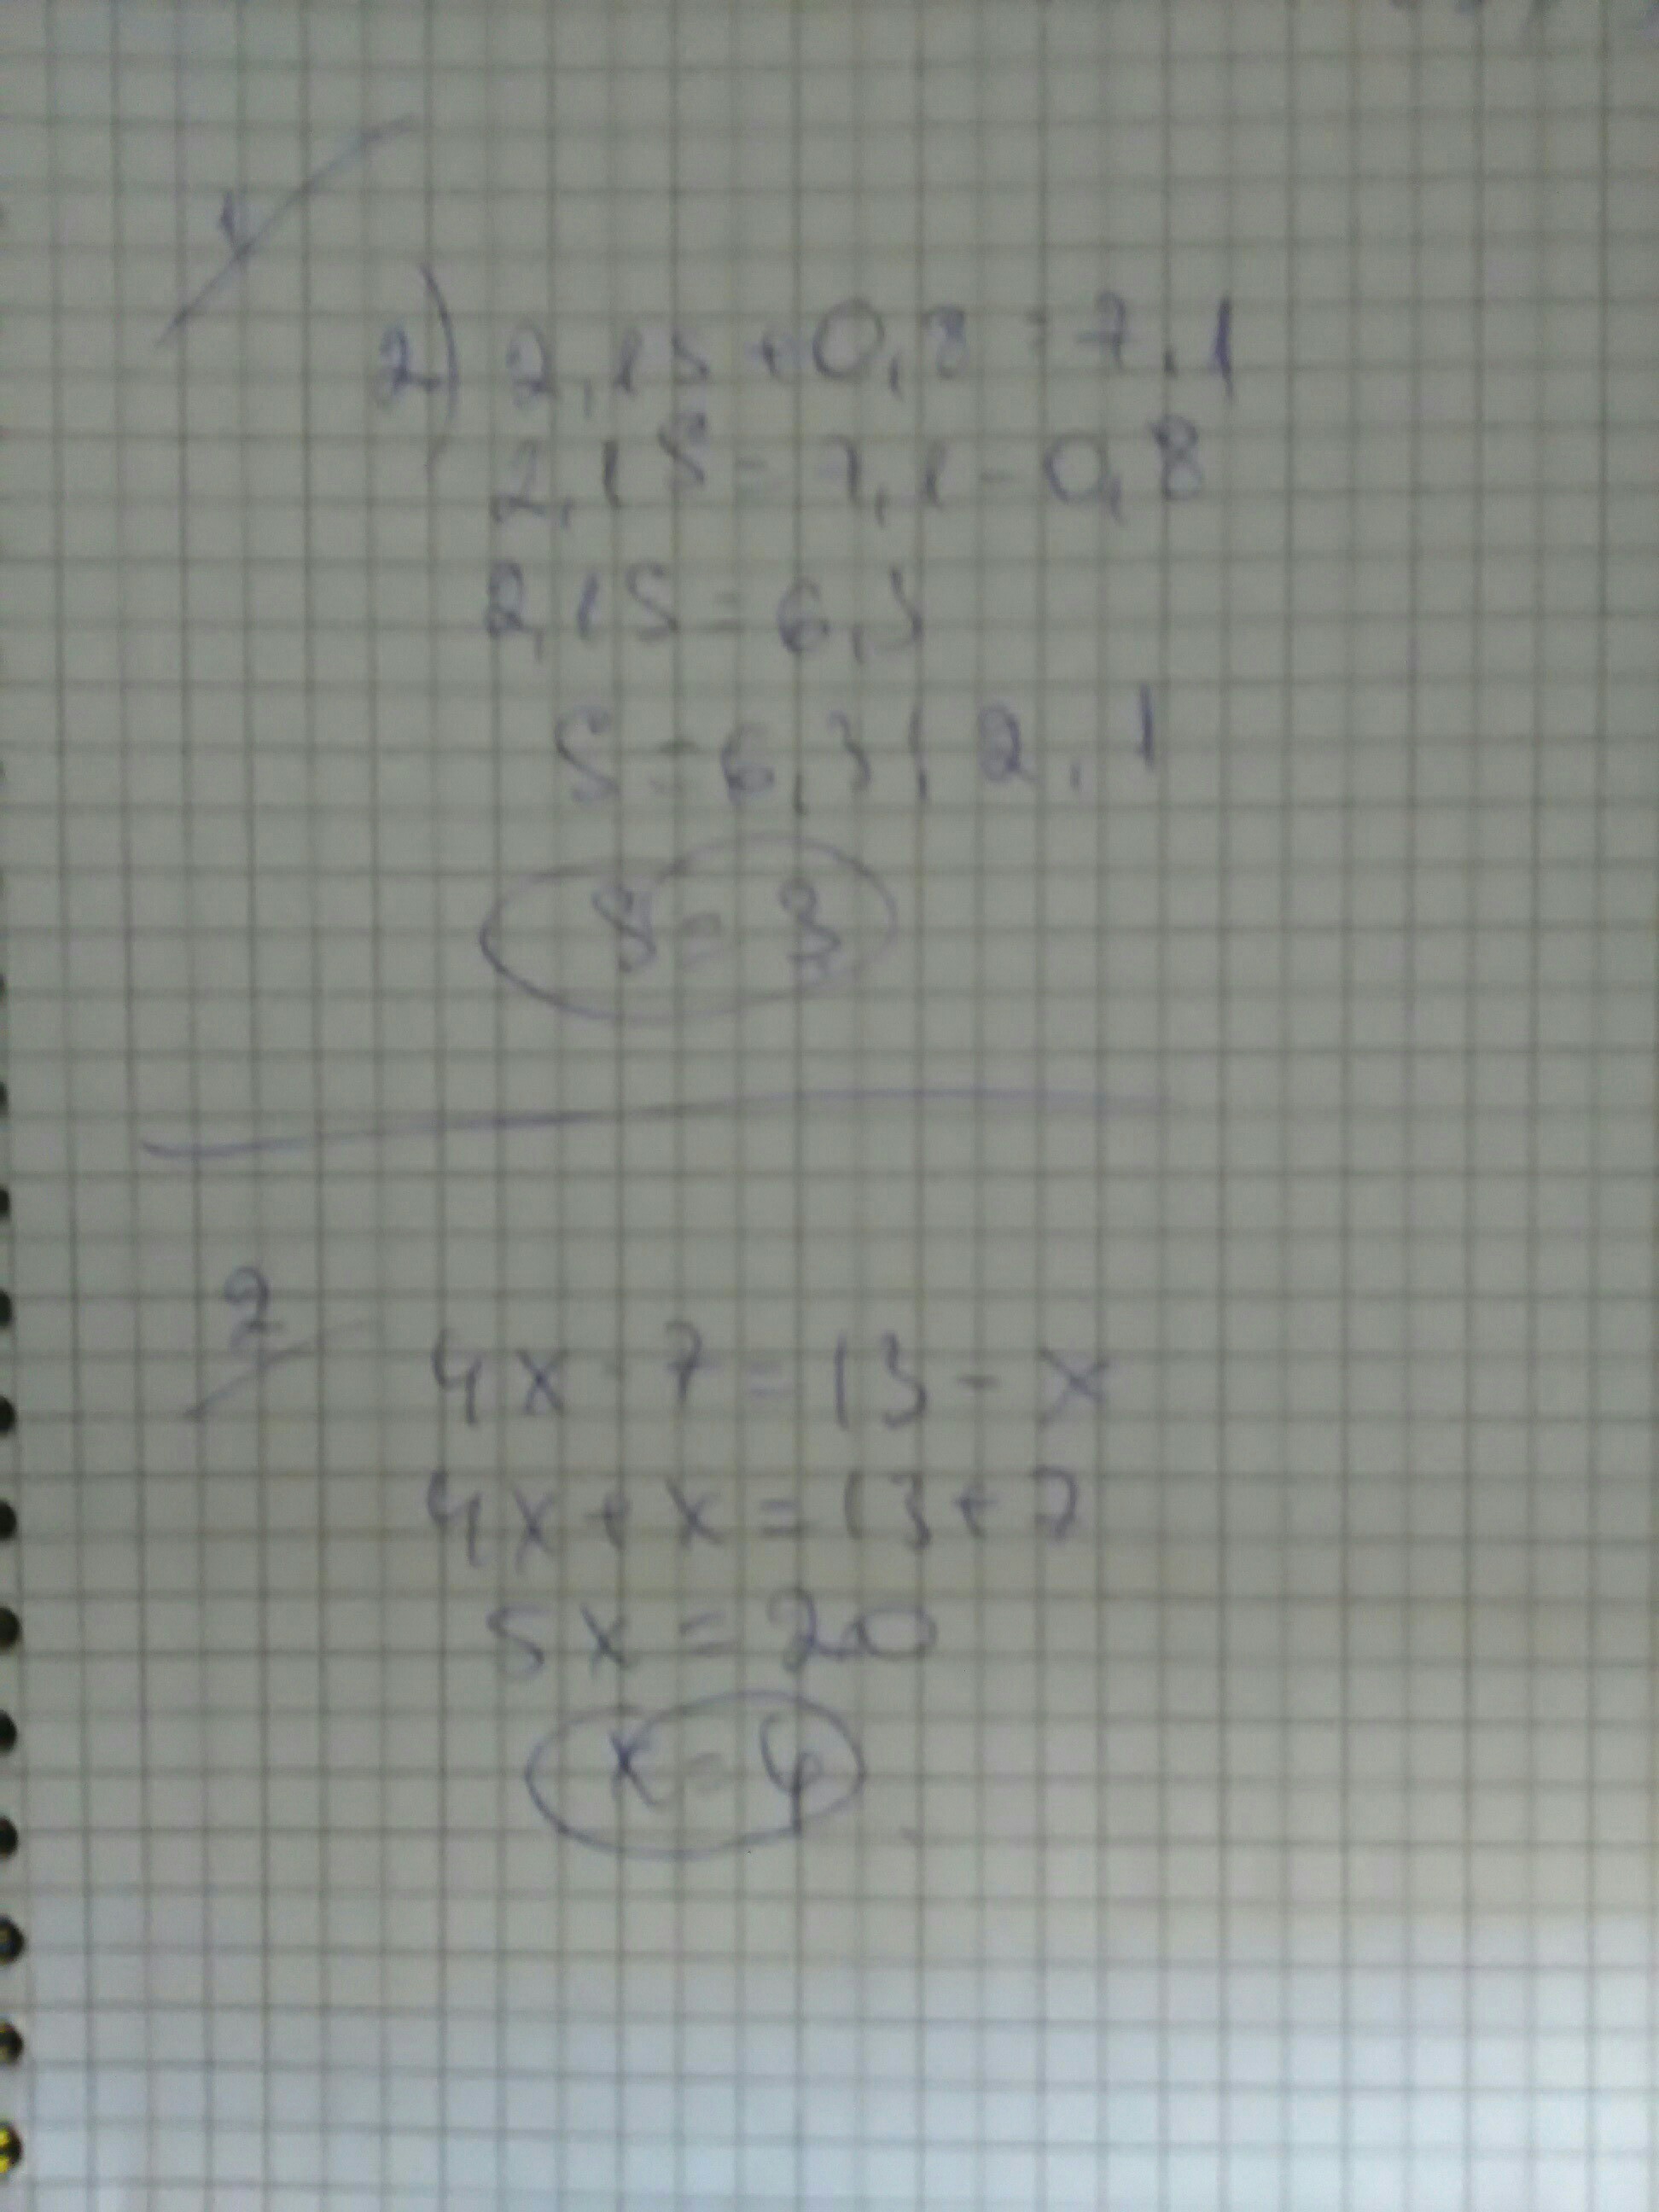 1
2) 2,1S + 0,8 = 7,1
2,1S = 7,1 - 0,8
2,1S = 6,3
S = 6,3 : 2,1
S = 3
2
4x - 7 = 13 - x
4x + x = 13 + 7
5x = 20
x = 4